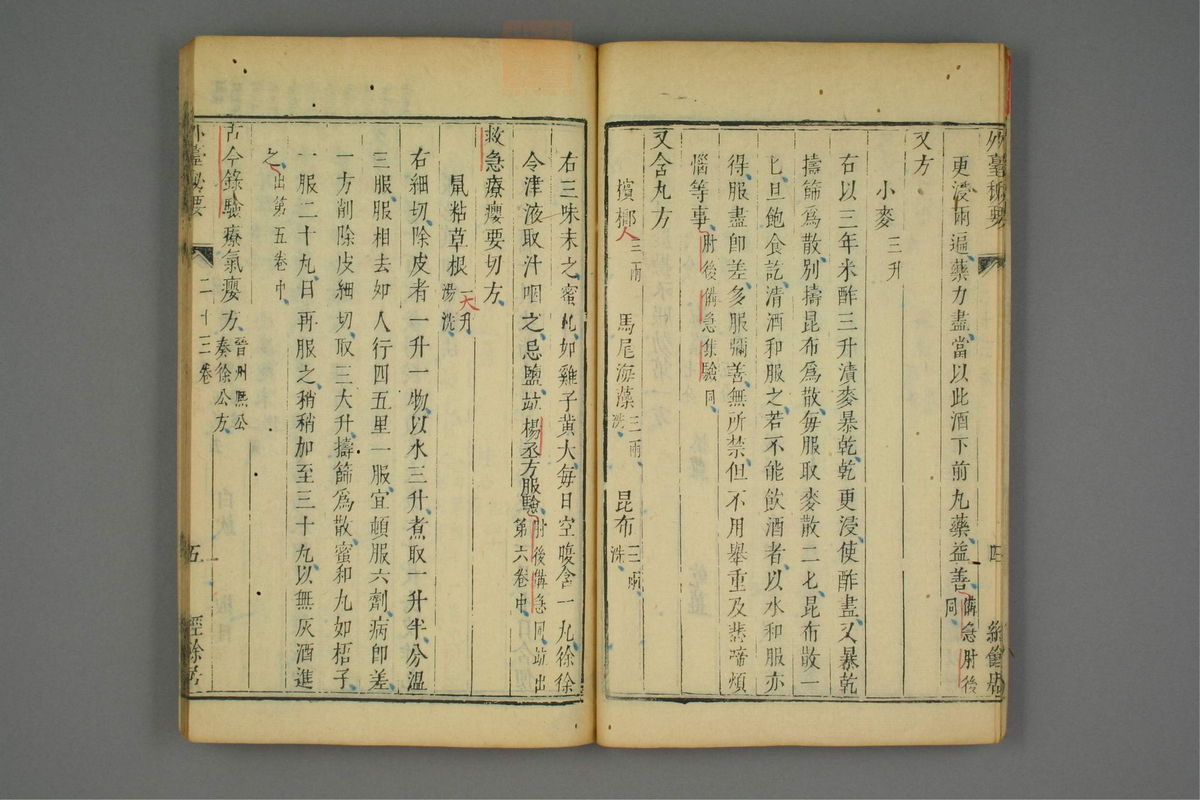 外臺祕要
四
經餘居
更浸兩遍藥力盡當以此酒下前丸藥益善備急肘後同
又方
小麥三升
右以三年米酢三升漬麥暴乾乾更浸使酢盡又暴乾
擣篩爲散別擣昆布爲散每服取麥散二匕昆布散一
匕旦飽食訖清酒和服之若不能飲酒者以水和服亦
得服盡卽差多服彌善無所禁但不用舉重及悲啼煩
惱等事肘後備急集驗同
又含丸方
檳榔人三兩 馬尾海藻三兩洗 昆布三兩洗
右三味末之蜜丸如雞子黄大每日空腹含一丸徐徐
令津液取汁咽之忌鹽竝楊丞方服驗肘後備急同竝出第六卷中
救急療癭要切方
鼠粘草根一大升湯洗
右細切除皮者一升一物以水三升煮取一升半分溫
三服服相去如人行四五里一服宜頓服六劑病卽差
一方削除皮細切取三大升擣篩爲散蜜和丸如梧子
一服二十丸日再服之稍稍加至三十丸以無灰酒進
之出第五卷中
古今錄驗療氣癭方晉州熙公奏徐公方
外臺祕要
二十三卷
五
經餘居